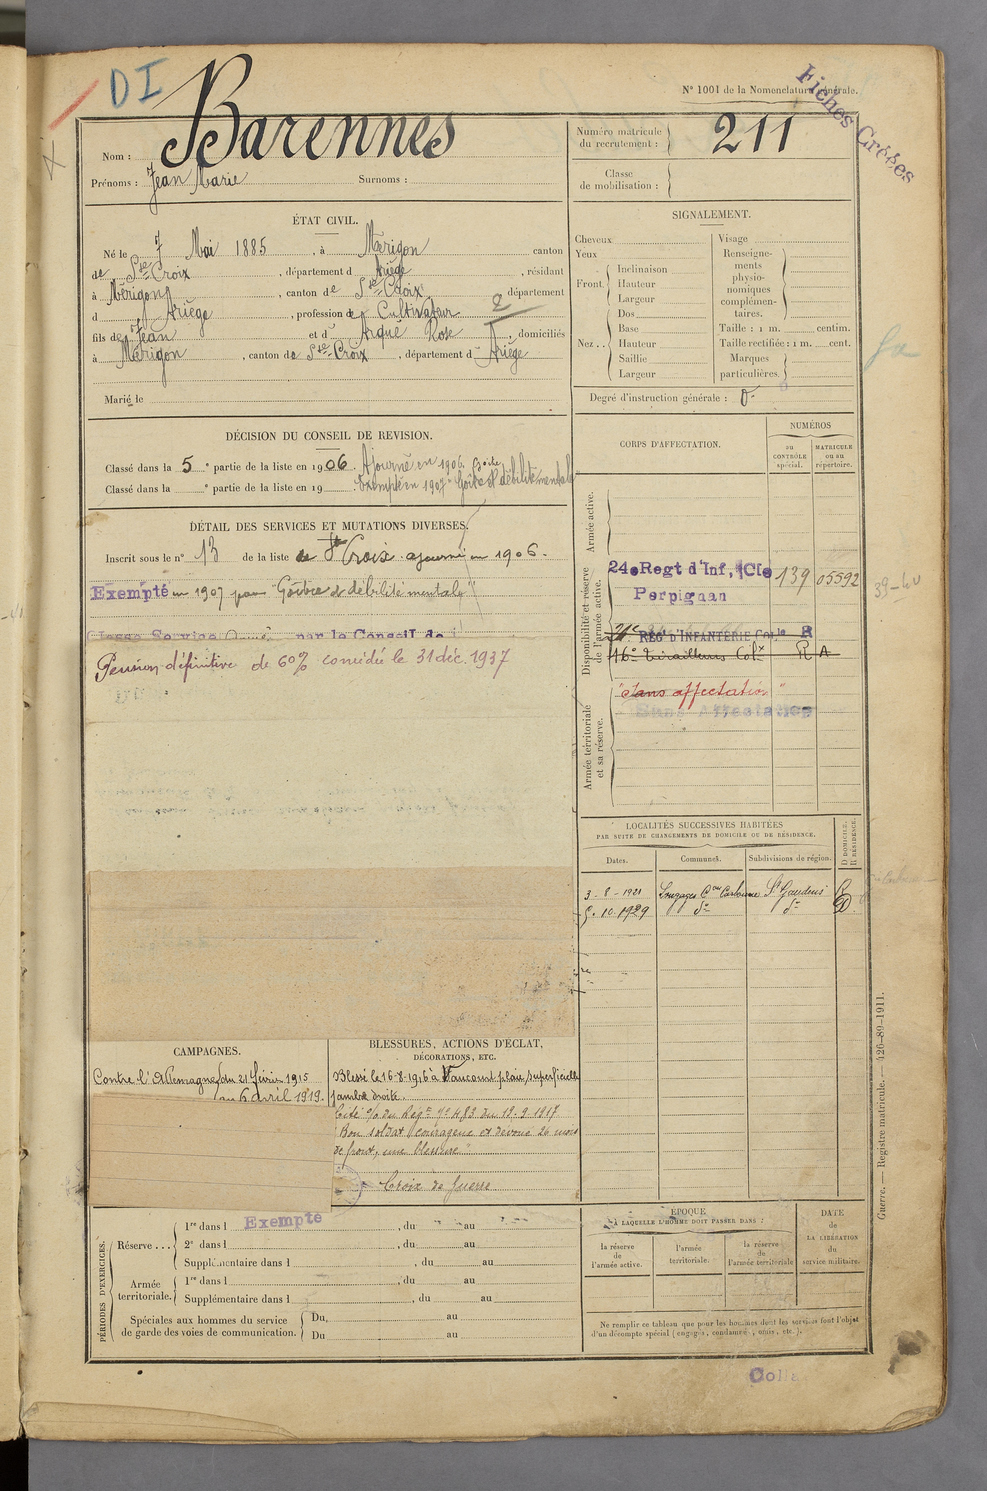 DI
N° 1001 de la Nomenclature générale.
Fiches Créées
Nom : Barennes
Prénoms : Jean Marie Surnoms :
Numéro matricule du recrutement : 211
Classe de mobilisation :
ÉTAT CIVIL.
Né le 7 Mai 1885, à Mérigon canton
de Ste Croix, département d Ariège, résidant
à Mérigon, canton de Ste Croix, département
d Ariège, profession de Cultivateur
fils de Jean et d' Arqué Rose, domiciliés
à Mérigon, canton de Ste Croix, département d Ariège
Marié le
SIGNALEMENT.
Cheveux
Yeux
Front. Inclinaison
Hauteur
Largeur
Nez .. Dos
Base
Hauteur
Saillie
Largeur
Visage
Renseignements physionomiques complémentaires.
Taille : 1 m. centim.
Taille rectifiée : 1 m. cent.
Marques particulières.
Degré d'instruction générale : 0
DÉCISION DU CONSEIL DE REVISION.
Classé dans la 5e partie de la liste en 1906. Ajourné en 1906. Goitre
Classé dans la e partie de la liste en 19 Exempté en 1907 Goitre et débilité mentale
DÉTAIL DES SERVICES ET MUTATIONS DIVERSES.
Inscrit sous le n° 13 de la liste de Ste Croix. ajourné en 1906.
Exempté en 1907 pour "Goitre et débilité mentale"
Classé Service Armé par le Conseil de
Pension définitive de 60% concédée le 31 déc. 1937
CORPS D'AFFECTATION.
NUMÉROS
au CONTRÔLE spécial.
MATRICULE ou au répertoire.
Armée active.
Disponibilité et réserve de l'armée active.
24e Regt d'Inf. Cle 139 05592
Perpignan
39-40
24e REGt D'INFANTERIE Colle R
16e Tirailleurs Colx R A
Armée territoriale et sa réserve.
"Sans affectation"
Sans Affectation
LOCALITÉS SUCCESSIVES HABITÉES
PAR SUITE DE CHANGEMENTS DE DOMICILE OU DE RÉSIDENCE.
Dates. Communes. Subdivisions de région. D DOMICILE. R RÉSIDENCE.
3-8-1921 Con Carbonne St Gaudens
5.10.1929 do do D
CAMPAGNES.
Contre l'Allemagne du 21 février 1915
au 6 avril 1919.
BLESSURES, ACTIONS D'ÉCLAT,
DÉCORATIONS, ETC.
Blessé le 16-8-1916 à Vaucourt plaie superficielle
jambe droite.
Cité o/o du Régt No 483 du 18.9.1917
"Bon soldat courageux et dévoué 26 mois
de front, une blessure"
Croix de Guerre
PÉRIODES D'EXERCICES.
Réserve ... 1re dans l Exempté, du au
2e dans l , du au
Supplémentaire dans l , du au
Armée territoriale. 1re dans l , du au
Supplémentaire dans l , du au
Spéciales aux hommes du service de garde des voies de communication. Du, au
Du au
ÉPOQUE
À LAQUELLE L'HOMME DOIT PASSER DANS :
la réserve de l'armée active.
l'armée territoriale.
la réserve de l'armée territoriale
DATE de LA LIBÉRATION du service militaire.
Ne remplir ce tableau que pour les hommes dont les services font l'objet
d'un décompte spécial (engagés, condamnés, omis, etc.).
Guerre. — Registre matricule. — 426-89-1911.